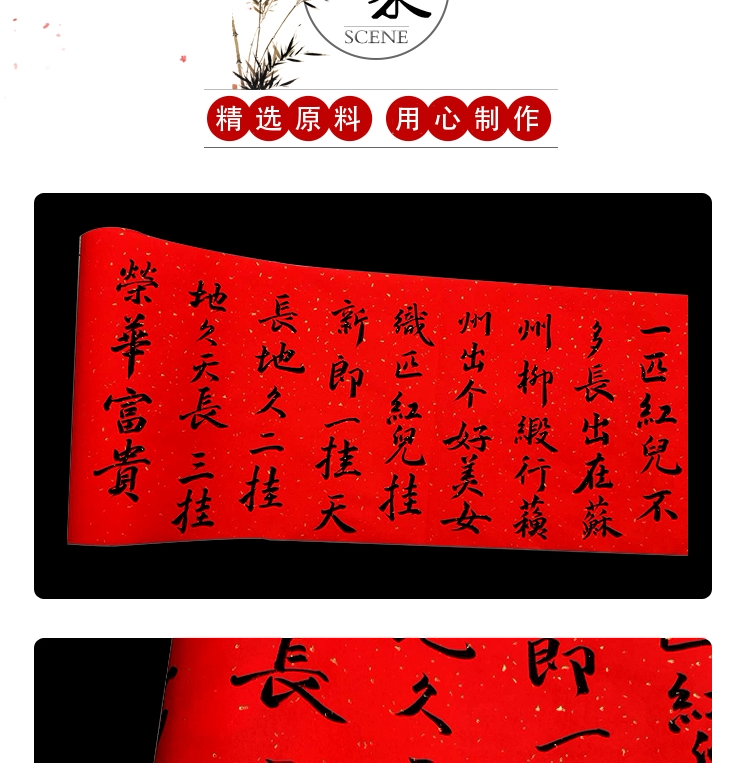 SCENE
精选原料 用心制作
一匹紅兒不
多長出在蘇
州柳緞行蘓
州出个好美女
織匹紅兒挂
新郎一挂天
長地久二挂
地久天長三挂
榮華富貴
長
久
即一
紅